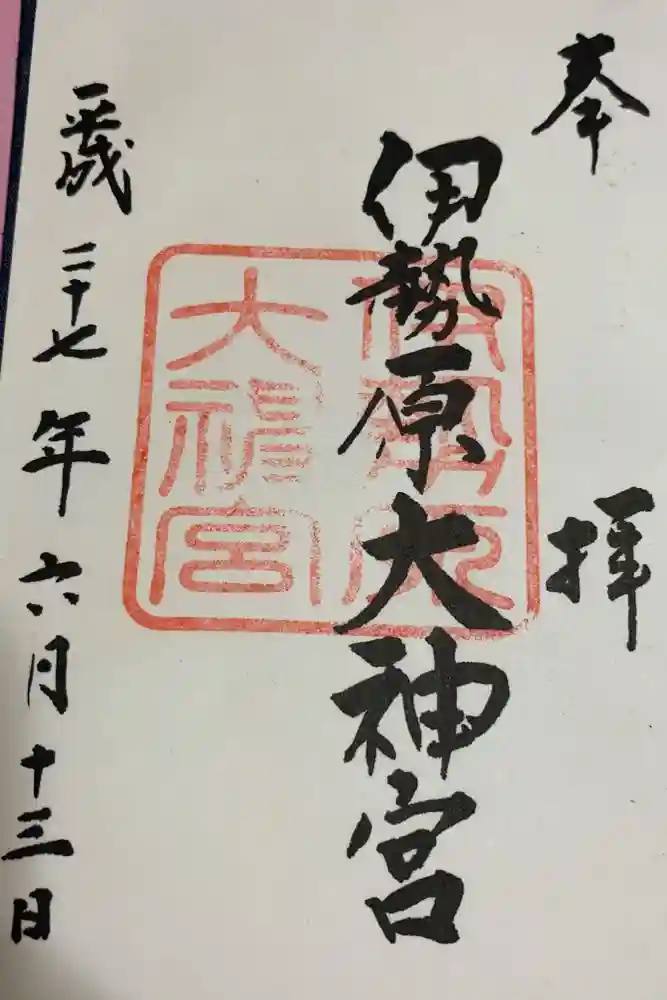 奉拝
伊勢原大神宮
平成二十七年六月十三日
伊勢原
大神宮